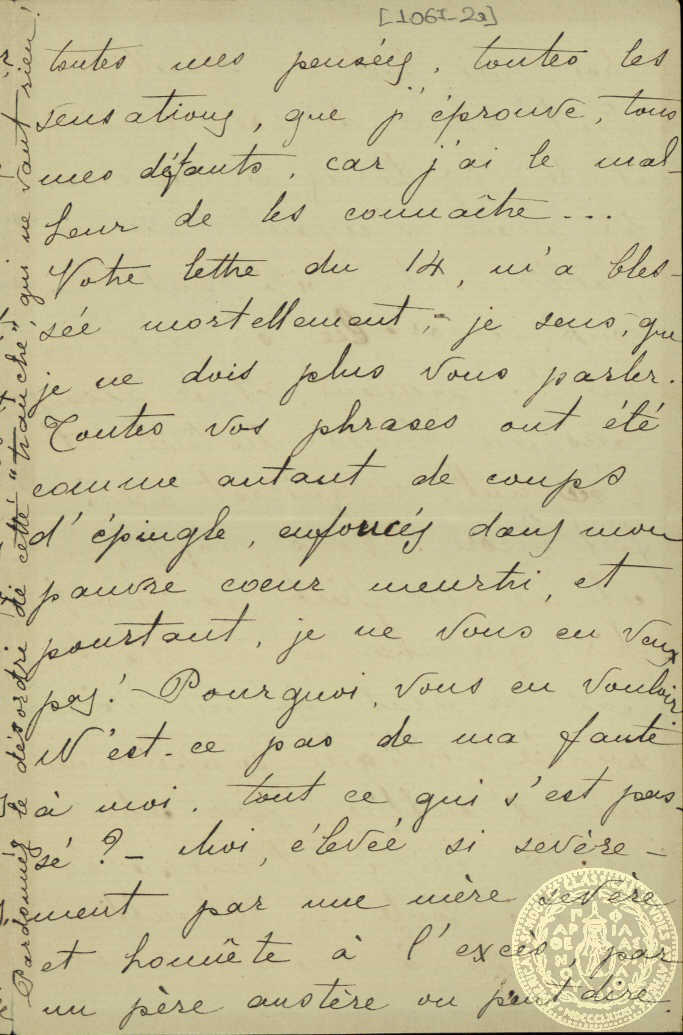 [1061-2a]
toutes mes pensées, toutes les
sensations, que j'éprouve, tous
mes défauts, car j'ai le mal-
heur de les connaître...
Votre lettre du 14, m'a bles-
sée mortellement, je sens, que
je ne dois plus vous parler.
Toutes vos phrases ont été
comme autant de coups
d'épingle, enfoncés dans mon
pauvre coeur meurtri, et
pourtant, je ne vous en veux
pas! — Pourquoi, vous en vouloir
N'est-ce pas de ma faute
à moi. tout ce qui s'est pas-
sé? — Moi, élevée si sevère-
ment par une mère sevère
et honnête à l'excès, par
un père austère on peut dire.
Pardonnéz le désordre de cette "tranche", qui ne vaut rien!
ΠΑΡΘΕΝΟΣ
ΦΙΛΙΑΣ
MDCCCLXXXI